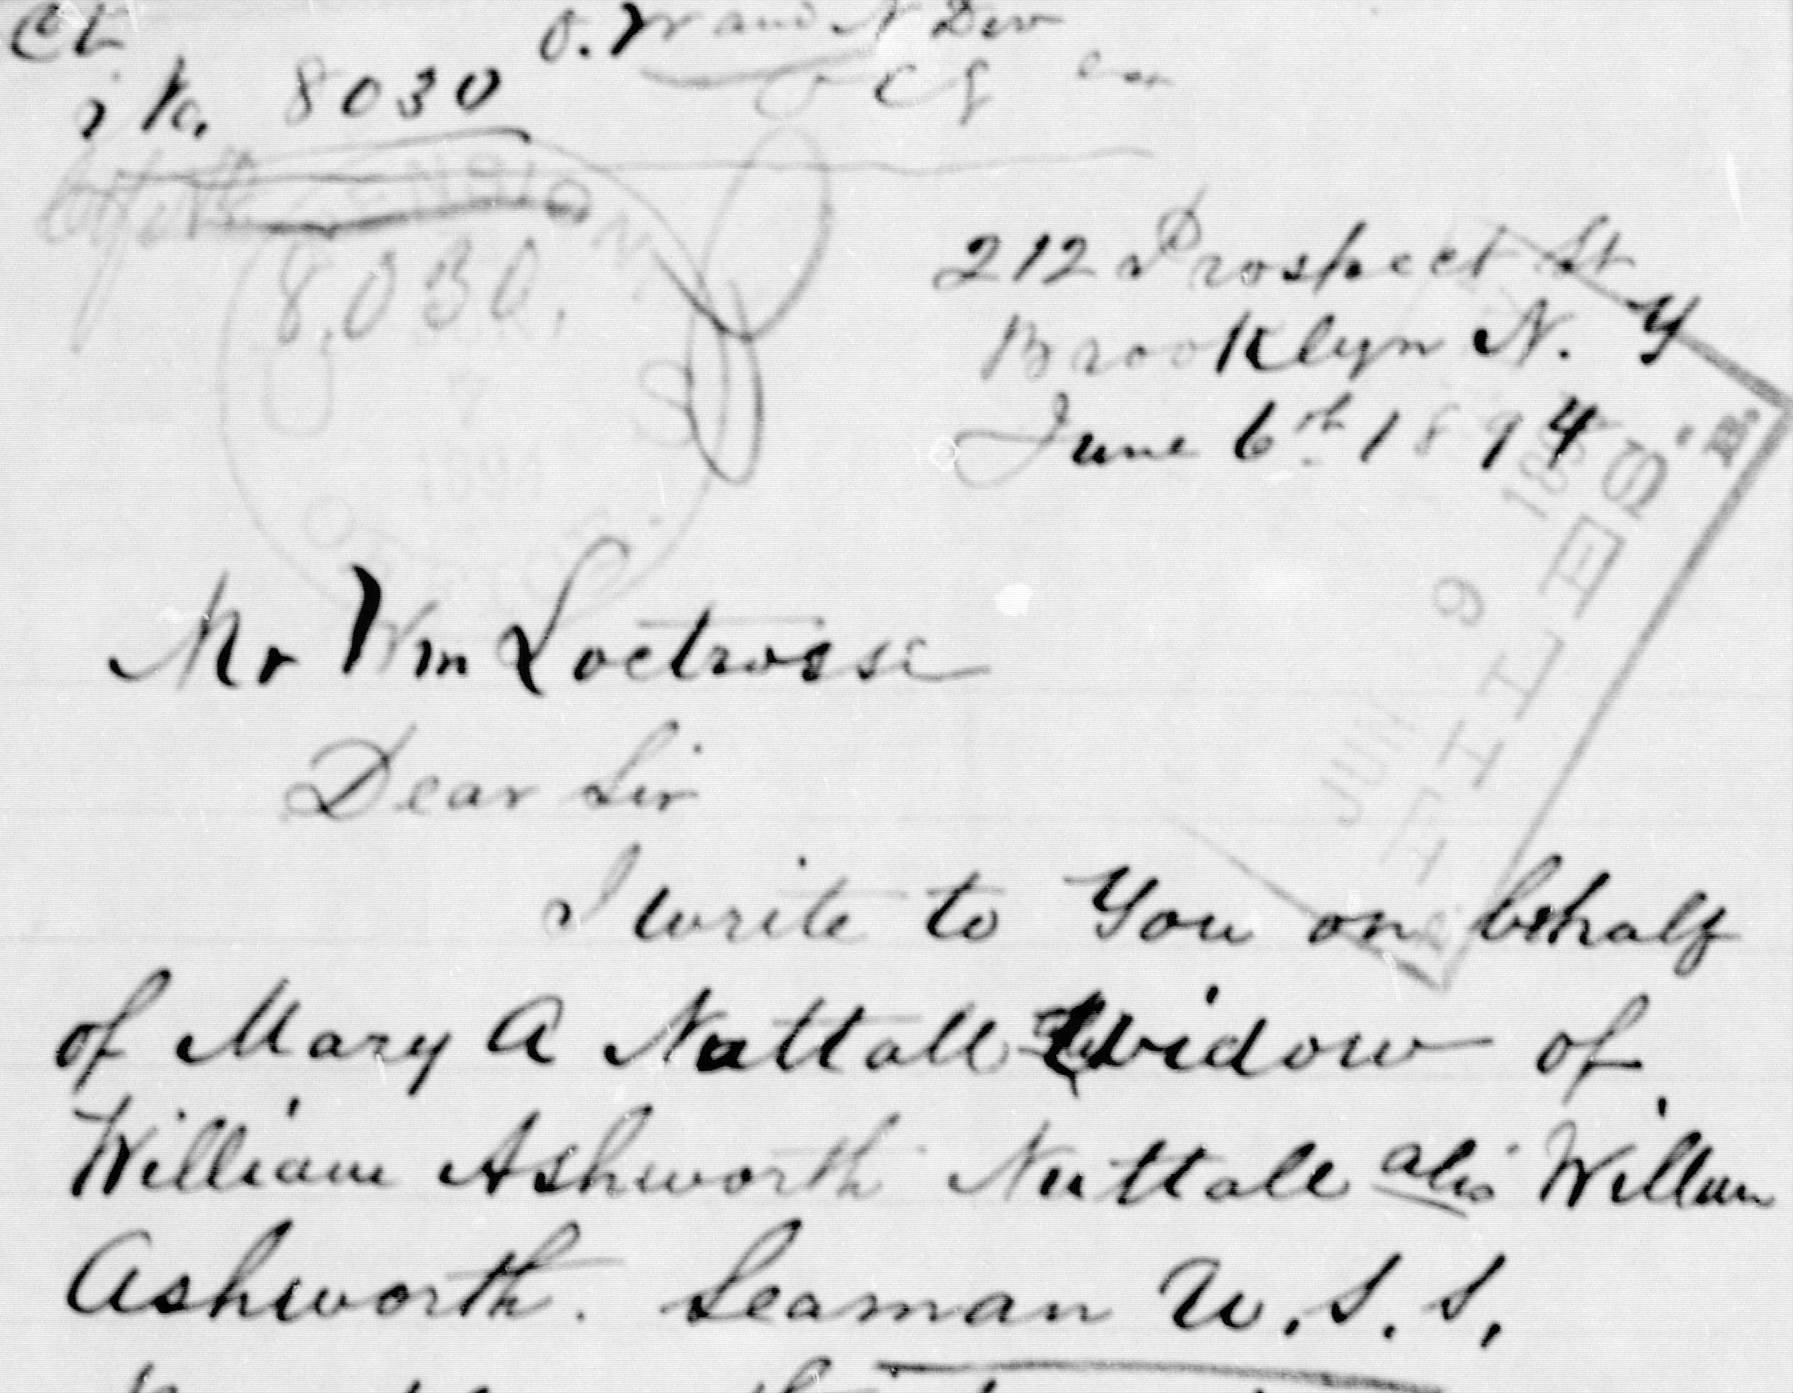 Ct
No. 8030
O. W and N Div
PENSION
8.030.
U S
7
1894
OFFICE.
212 Prospect St
Brooklyn N. Y
June 6th 1894
FILES.
JUN 9 1894
Mr Wm Loctrosse
Dear Sir
I write to You on behalf
of Mary A Nuttall Widow of
William Ashworth Nuttall alis William
Ashworth. Seaman U.S.S.